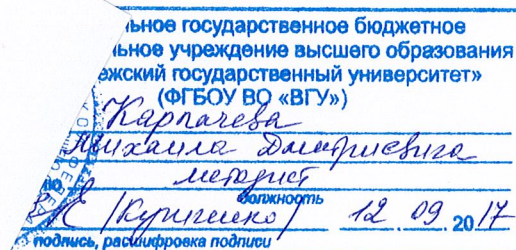 льное государственное бюджетное
льное учреждение высшего образования
ежский государственный университет»
(ФГБОУ ВО «ВГУ»)
Карпачева
Михаила Дмитриевича
методист
должность
12 09 2017
подпись, расшифровка подписи